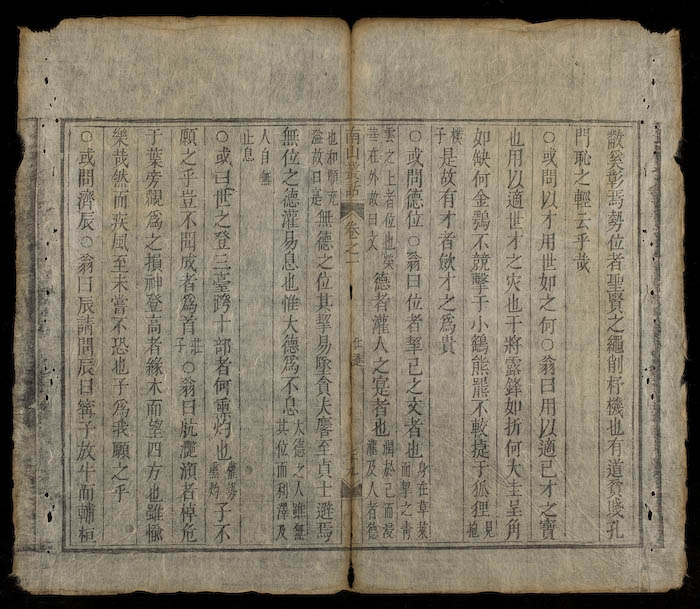 散奚彰焉勢位者聖賢之繩削杼機也有道貧賤孔
門恥之輕云乎哉
○或問以才用世如之何○翁曰用以適己才之寶
也用以適世才之灾也干將露鋒如折何大圭呈角
如缺何金鶚不競擊于小鶴熊羆不較捷于狐狸見抱
樸子是故有才者斂才之爲貴
○或問德位○翁曰位者挈己之文者也身在草萊而挈之靑
雲之上者位也華在外故曰文德者灌人之寔者也潤於己而浸灌及人者德
南山叢話 卷之一 仕進
也和順充溢故曰寔無德之位其挈易墜貪夫麐至貞士避焉
無位之德灌易息也惟大德爲不息大德之人雖無其位而利澤及
人自無止息
○或曰世之登三臺跨十部者何熏灼也權勢熏灼子不
願之乎豈不聞成者爲首莊子○翁曰杭灩澦者棹危
于葉旁視爲之損神登高者緣木而望四方也雖愉
樂哉然而疾風至未嘗不恐也子爲我願之乎
○或問濟辰○翁曰辰請問辰曰甯子放牛而輔桓